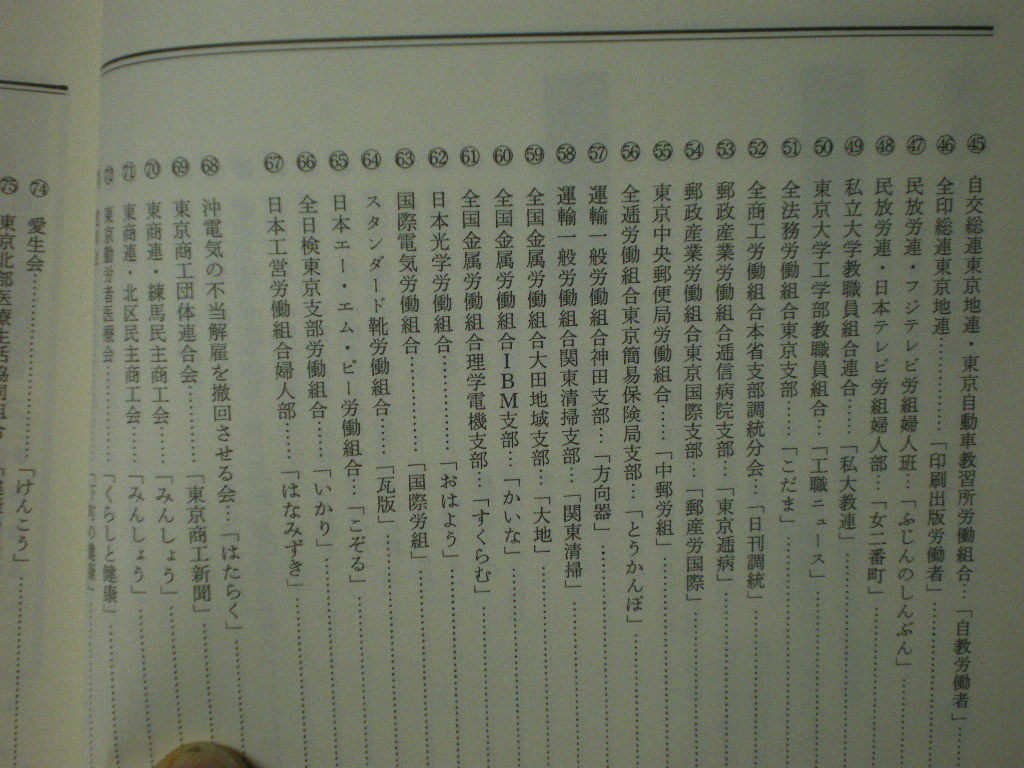 ㊺ 自交総連東京地連・東京自動車教習所労働組合…「自教労働者」
㊻ 全印総連東京地連…………「印刷出版労働者」
㊼ 民放労連・フジテレビ労組婦人班…「ふじんのしんぶん」
㊽ 民放労連・日本テレビ労組婦人部…「女二番町」
㊾ 私立大学教職員組合連合……「私大教連」
㊿ 東京大学工学部教職員組合…「工職ニュース」
51 全法務労働組合東京支部……「こだま」
52 全商工労働組合本省支部調統分会…「日刊調統」
53 郵政産業労働組合逓信病院支部…「東京逓病」
54 郵政産業労働組合東京国際支部…「郵産労国際」
55 東京中央郵便局労働組合……「中郵労組」
56 全逓労働組合東京簡易保険局支部…「とうかんぽ」
57 運輸一般労働組合神田支部…「方向器」
58 運輸一般労働組合関東清掃支部…「関東清掃」
59 全国金属労働組合大田地域支部…「大地」
60 全国金属労働組合IBM支部…「かいな」
61 全国金属労働組合理学電機支部…「すくらむ」
62 日本光学労働組合…………「おはよう」
63 国際電気労働組合…………「国際労組」
64 スタンダード靴労働組合……「瓦版」
65 日本エー・エム・ピー労働組合…「こぞる」
66 全日検東京支部労働組合……「いかり」
67 日本工営労働組合婦人部……「はなみずき」
68 沖電気の不当解雇を撤回させる会…「はたらく」
69 東京商工団体連合会…………「東京商工新聞」
70 東商連・練馬民主商工会……「みんしょう」
71 東商連・北区民主商工会……「みんしょう」
72 東京勤労者医療会…………「くらしと健康」
74 愛生会…………「けんこう」
75 東京北部医療生活協同組合